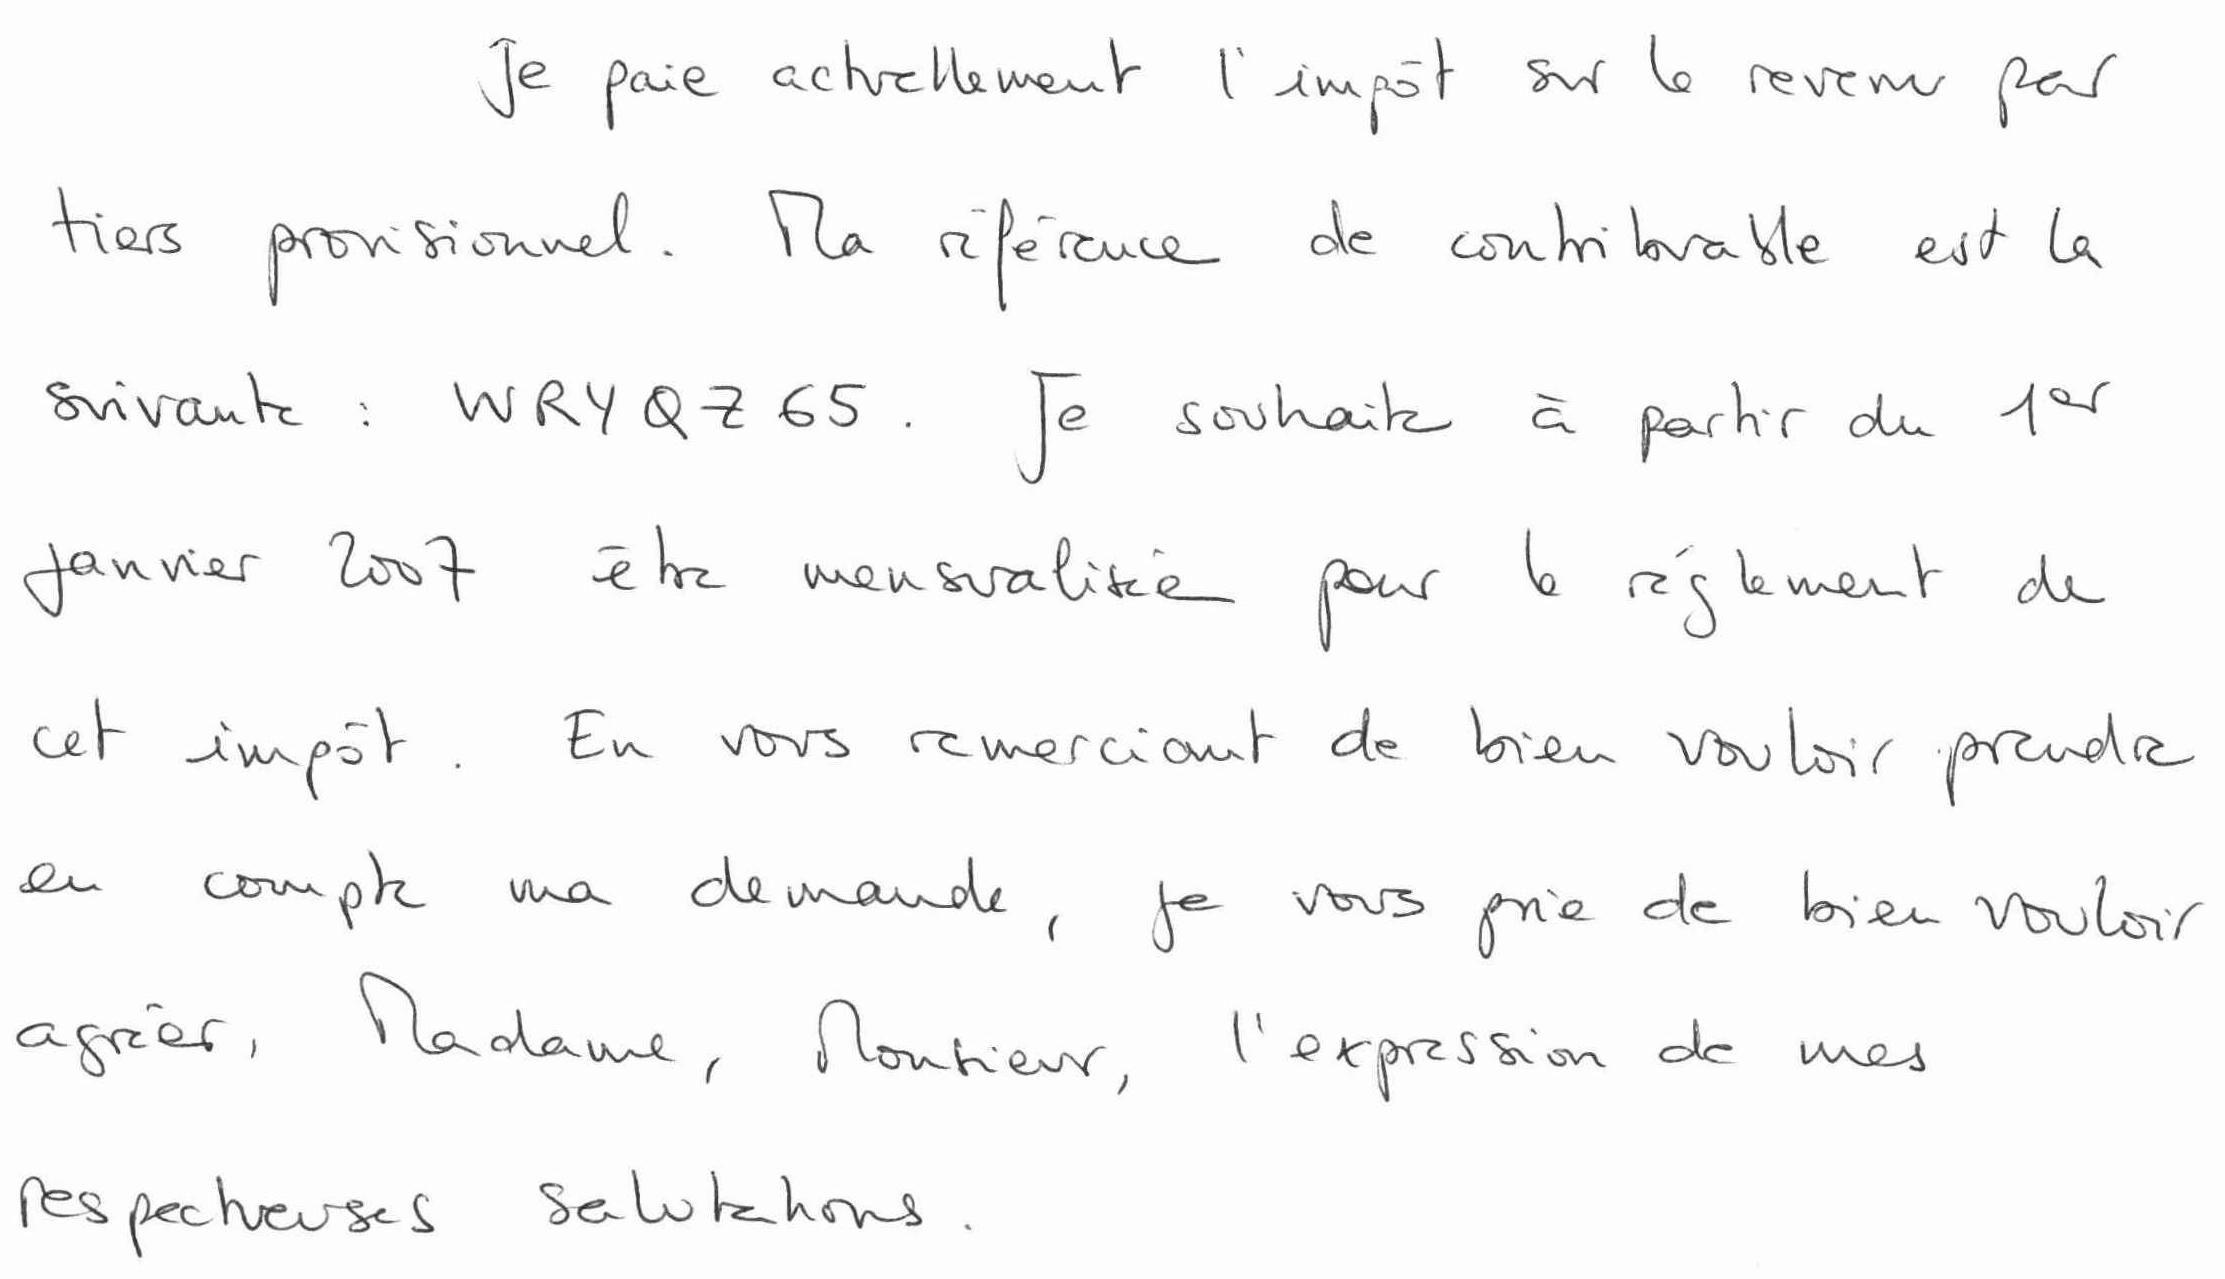 Je paie actuellement l'impôt sur le revenu par
tiers provisionnel. Ma référence de contribuable est la
suivante : WRYQZ65. Je souhaite à partir du 1er
janvier 2007 être mensualisée pour le réglement de
cet impôt. En vous remerciant de bien vouloir prendre
en compte ma demande, je vous prie de bien vouloir
agréer, Madame, Monsieur, l'expression de mes
respectueuses salutations.